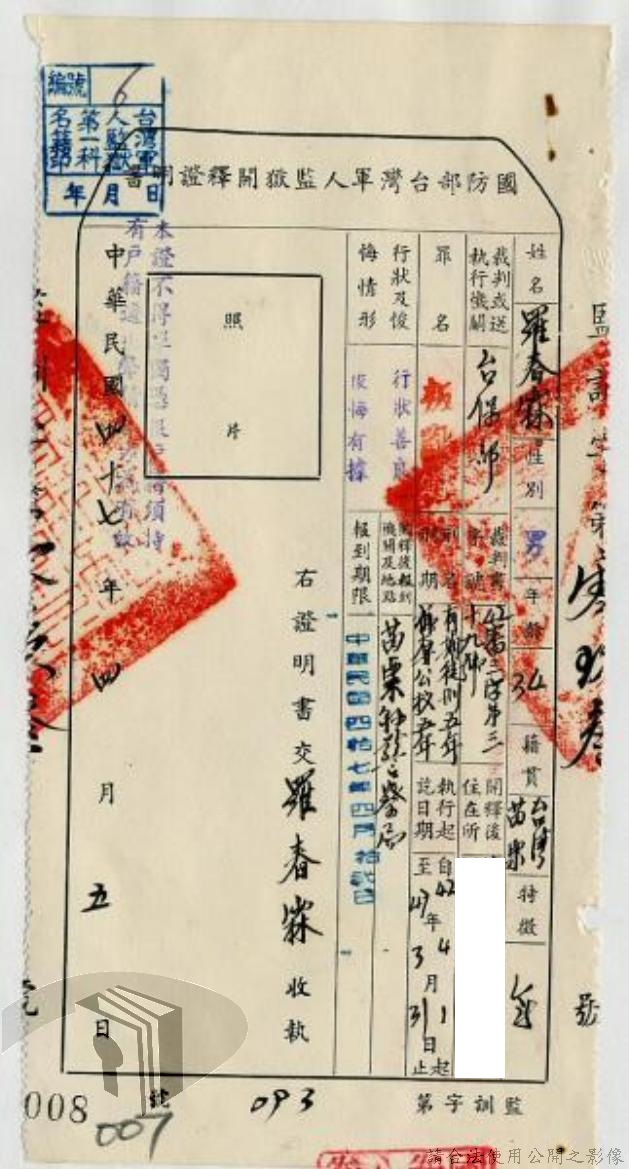 號編
台灣軍
人監獄
第一科
名籍
年 月 日
國防部台灣軍人監獄開釋證明書
姓名 羅春霖 性別 男 年齡 34 籍貫 台灣苗栗 特徵
裁判或送執行機關 台保部 裁判書字號 42審三字第三十九號 開釋後住在所
罪名 叛亂 刑名刑期 有期徒刑五年褫奪公權五年 執行起訖日期 自42年4月1日起至47年3月31日止
行狀及悛悔情形 行狀善良悛悔有據 開釋後報到機關及地點 苗栗縣警察局
報到期限 中華民國四拾七年四月拾貳日
照片
右證明書交 羅春霖 收執
本證不得
有戶籍
中華民國四十七年四月五日
監訓字第 093 號
008
007
監訓字第
號
請合法使用公開之影像